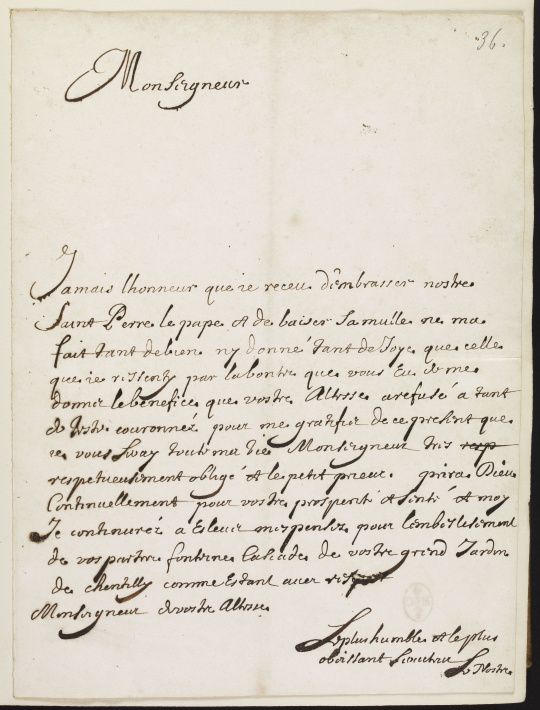 36.
Monseigneur
Jamais lhonneur que ie receu dembrasser nostre
Saint Perre le pape et de baiser sa mulle ne ma
fait tant de bien ny donné tant de Joye que celle
que ie rissenty par la bontre que vous Eu de me
donner le benefice que vostre Altesse a refusé a tant
de teste couronnez pour me gratifier de ce present que
ie vous Sray toute ma vie Monseigneur tres resp
respetueusement obligé et le petit prieur prira Dieu
Continuellement pour vostre prosperité et Senté et moy
Je continuréz a Esleuer mes penséz pour lembelisement
de vos partre fonteine Cascade de vostre grend Jardin
de chentilly comme Estant avec respect
Monseigneur de vostre Altesse
Le plus humble et le plus
obeissant Serviteur
Le Nostre